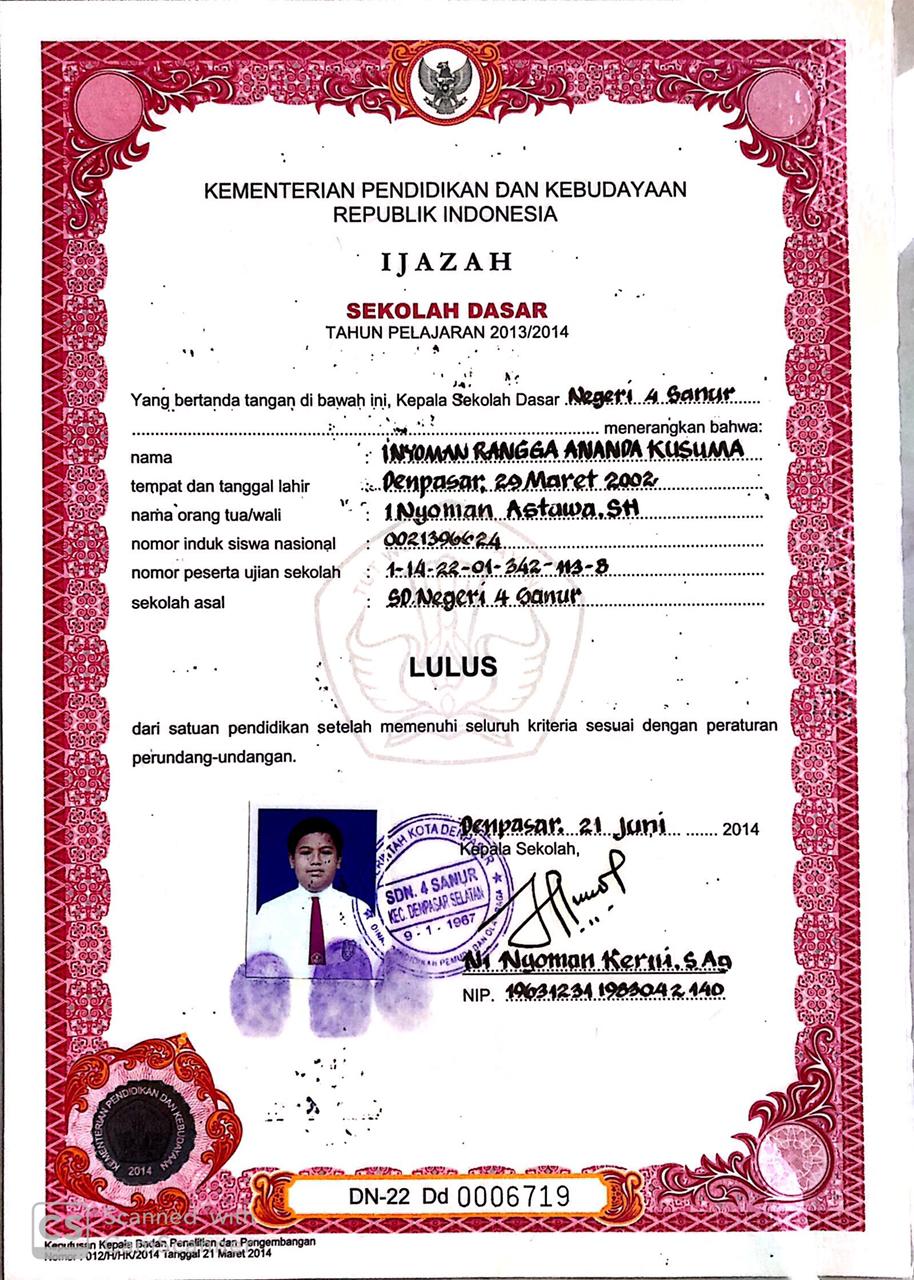 KEMENTERIAN PENDIDIKAN DAN KEBUDAYAAN
REPUBLIK INDONESIA
IJAZAH
SEKOLAH DASAR
TAHUN PELAJARAN 2013/2014
Yang bertanda tangan di bawah ini, Kepala Sekolah Dasar Negeri 4 Sanur
menerangkan bahwa:
nama : I NYOMAN RANGGA ANANDA KUSUMA
tempat dan tanggal lahir : Denpasar, 29 Maret 2002
nama orang tua/wali : I Nyoman Astawa, SH
nomor induk siswa nasional : 0021396624
nomor peserta ujian sekolah : 1-14-22-01-342-113-8
sekolah asal : SD Negeri 4 Sanur
LULUS
dari satuan pendidikan setelah memenuhi seluruh kriteria sesuai dengan peraturan
perundang-undangan.
Denpasar, 21 Juni 2014
Kepala Sekolah,
SDN. 4 SANUR
KEC. DENPASAR SELATAN
9 - 1 - 1967
Ni Nyoman Kerni, S.Ag
NIP. 19631231 198304 2 140
KEMENTERIAN PENDIDIKAN DAN KEBUDAYAAN
2014
DN-22 Dd 0006719
CS Scanned with
Keputusan Kepala Badan Penelitian dan Pengembangan
Nomor : 012/H/HK/2014 Tanggal 21 Maret 2014